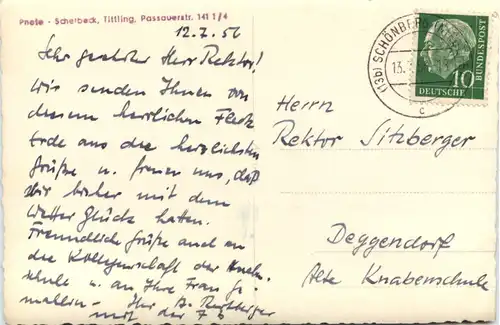 Photo - Scherbeck, Tittling, Passauerstr. 141 1/4
12.7.56
Sehr geehrter Herr Rektor!
Wir senden Ihnen von
diesem herrlichen Fleck
Erde aus die herzlichsten
Grüße u. freuen uns, daß
wir bisher mit dem
Wetter Glück hatten.
Freundliche Grüße auch an
die Kollegenschaft der Knaben-
schule u. an Ihre Frau Ge-
mahlin - Ihr
mit der 7b
(13b) SCHÖNBERG
13.
c
10
DEUTSCHE
BUNDESPOST
Herrn
Rektor Sitzberger
Deggendorf
Alte Knabenschule